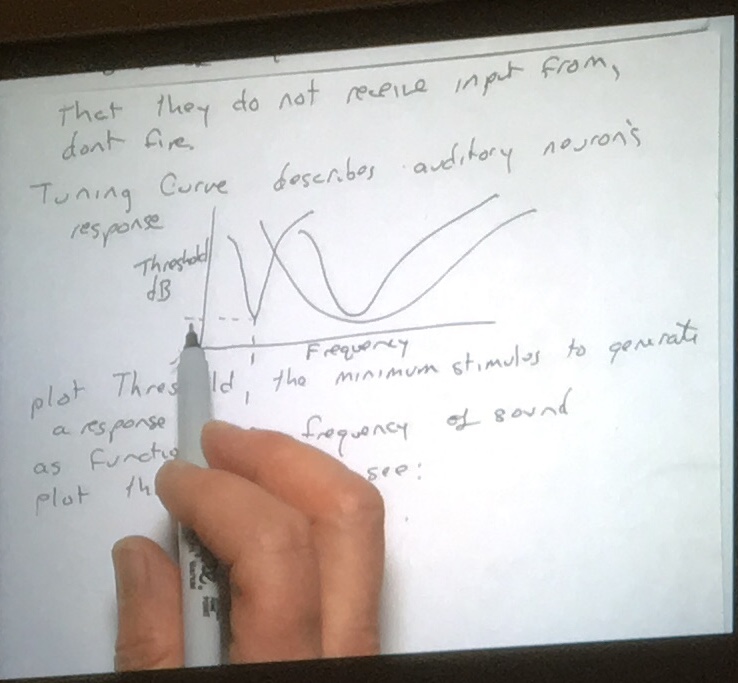 That they do not receive input from,
dont fire.
Tuning Curve describes auditory neuron's
response
Threshold
dB
Frequency
plot Thres ld, the minimum stimulus to generate
a response frequency of sound
as functio see:
plot th